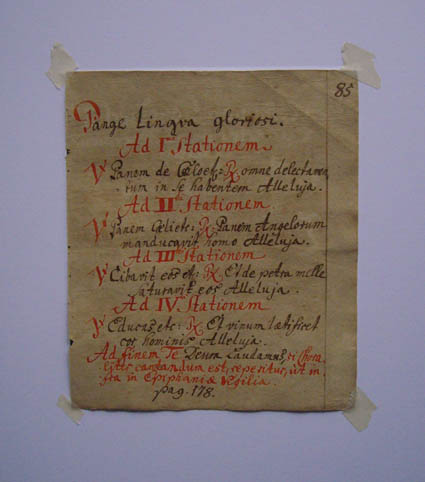 85
Pange Lingva gloriosi.
Ad I. Stationem
V Panem de Cœlo etc: R omne delectamen
tum in se habentem Alleluja.
Ad II. Stationem
V Panem Cœli etc: R Panem Angelorum
manducavit homo Alleluja.
Ad III. Stationem
V Cibavit eos etc: R Et de petra melle
saturavit eos Alleluja.
Ad IV. Stationem
V Educas etc: R Et vinum lætificet
cor hominis Alleluja.
Ad finem Te Deum Laudamus, si Chora
liter cantandum est, reperitur, ut in
fra in Epiphaniæ Vigilia.
pag. 178.